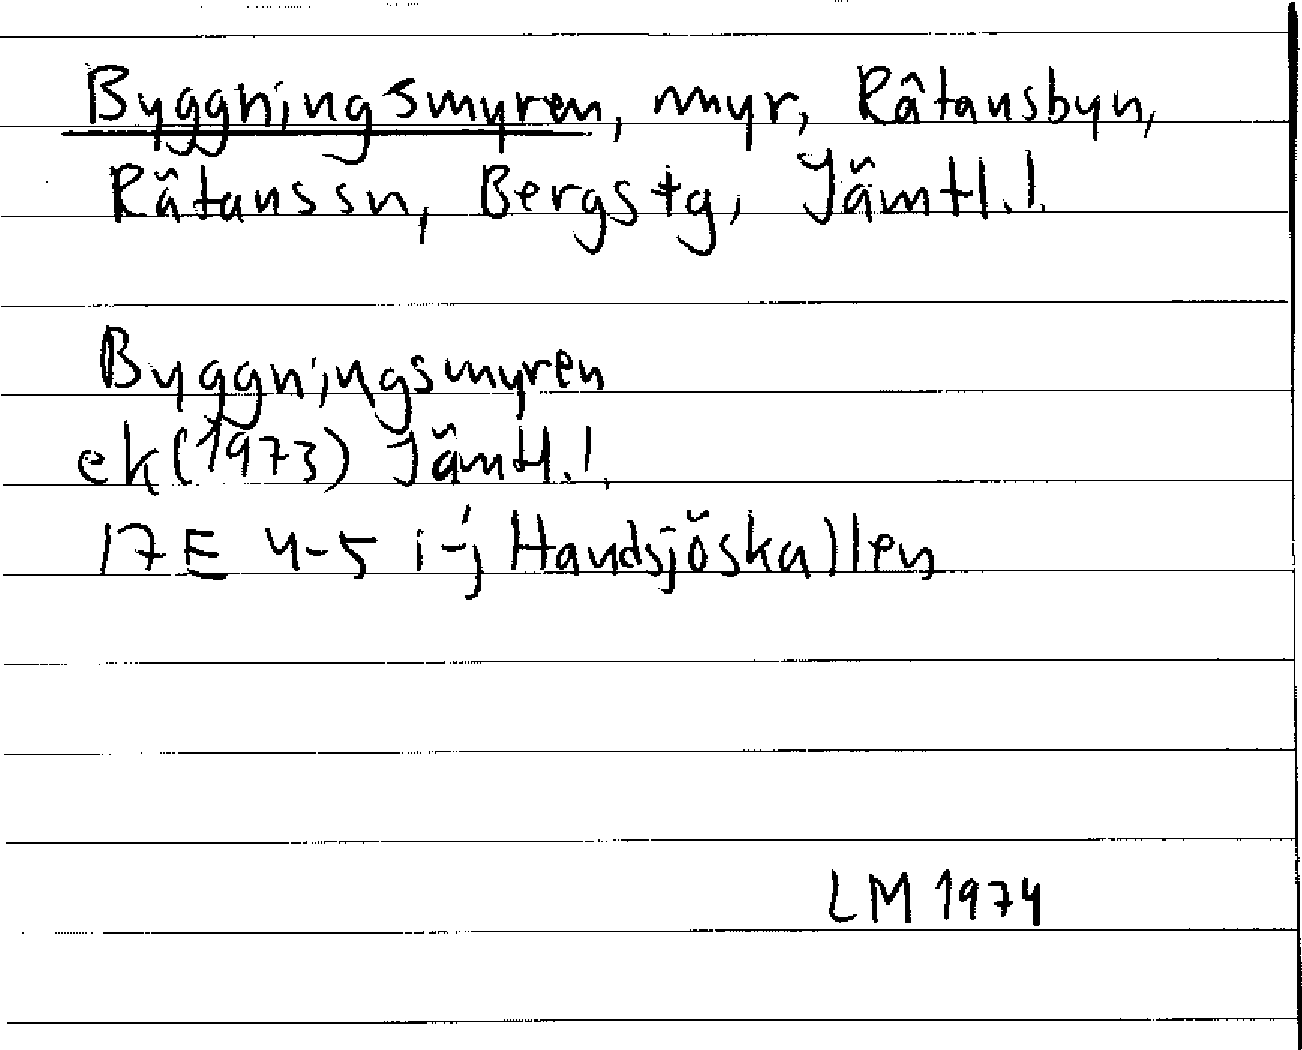 Byggningsmyren, myr, Råtansbyn,
Rätanssn, Bergstg, Jämtl.l.
Byggningsmyren
ek(1973) Jämtl.l.
17E 4-5 i-j Handsjöskallen
LM 1974